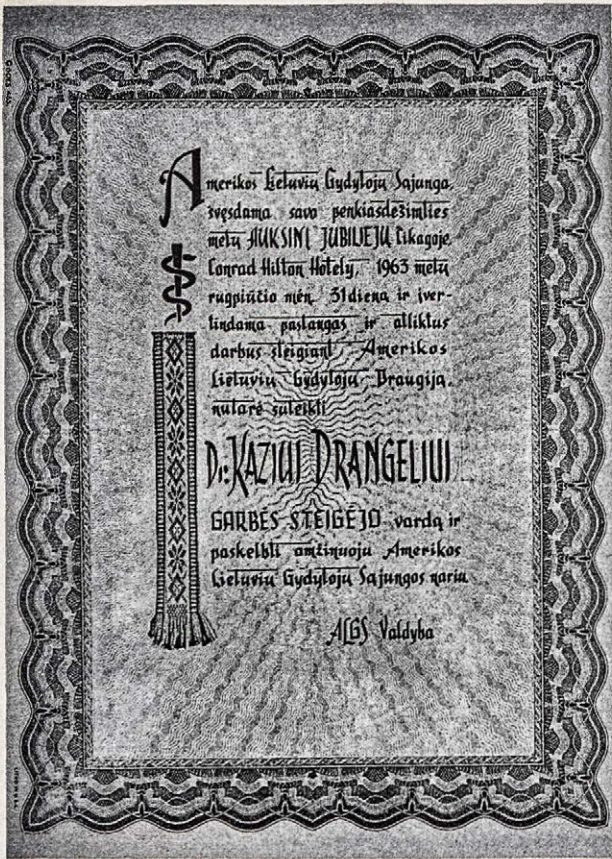 Amerikos Lietuvių Gydytojų Sąjunga,
švęsdama savo penkiasdešimties
metų AUKSINĮ JUBILIEJŲ Čikagoje,
Conrad Hilton Hotely, 1963 metų
rugpiūčio mėn. 31 dieną ir įver-
tindama pastangas ir atliktus
darbus steigiant Amerikos
Lietuvių Gydytojų Draugiją,
nutarė suteikti
Dr. KAZIUI DRANGELIUI
GARBĖS STEIGĖJO vardą ir
paskelbti amžinuoju Amerikos
Lietuvių Gydytojų Sąjungos nariu
ALGS Valdyba